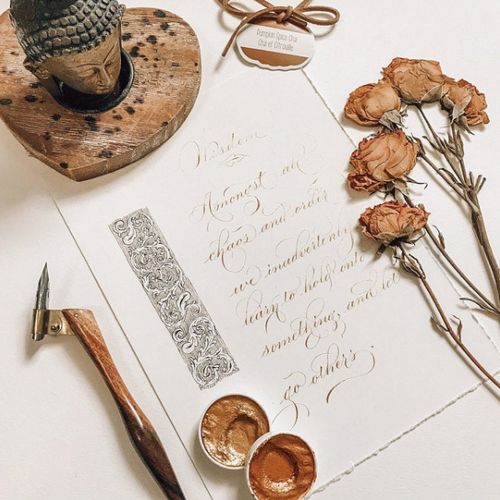 Pumpkin Spice Chai
Chai et Citrouille
Wisdom
Amongst all
chaos and order
we inadvertently
learn to hold onto
something, and let
go others.